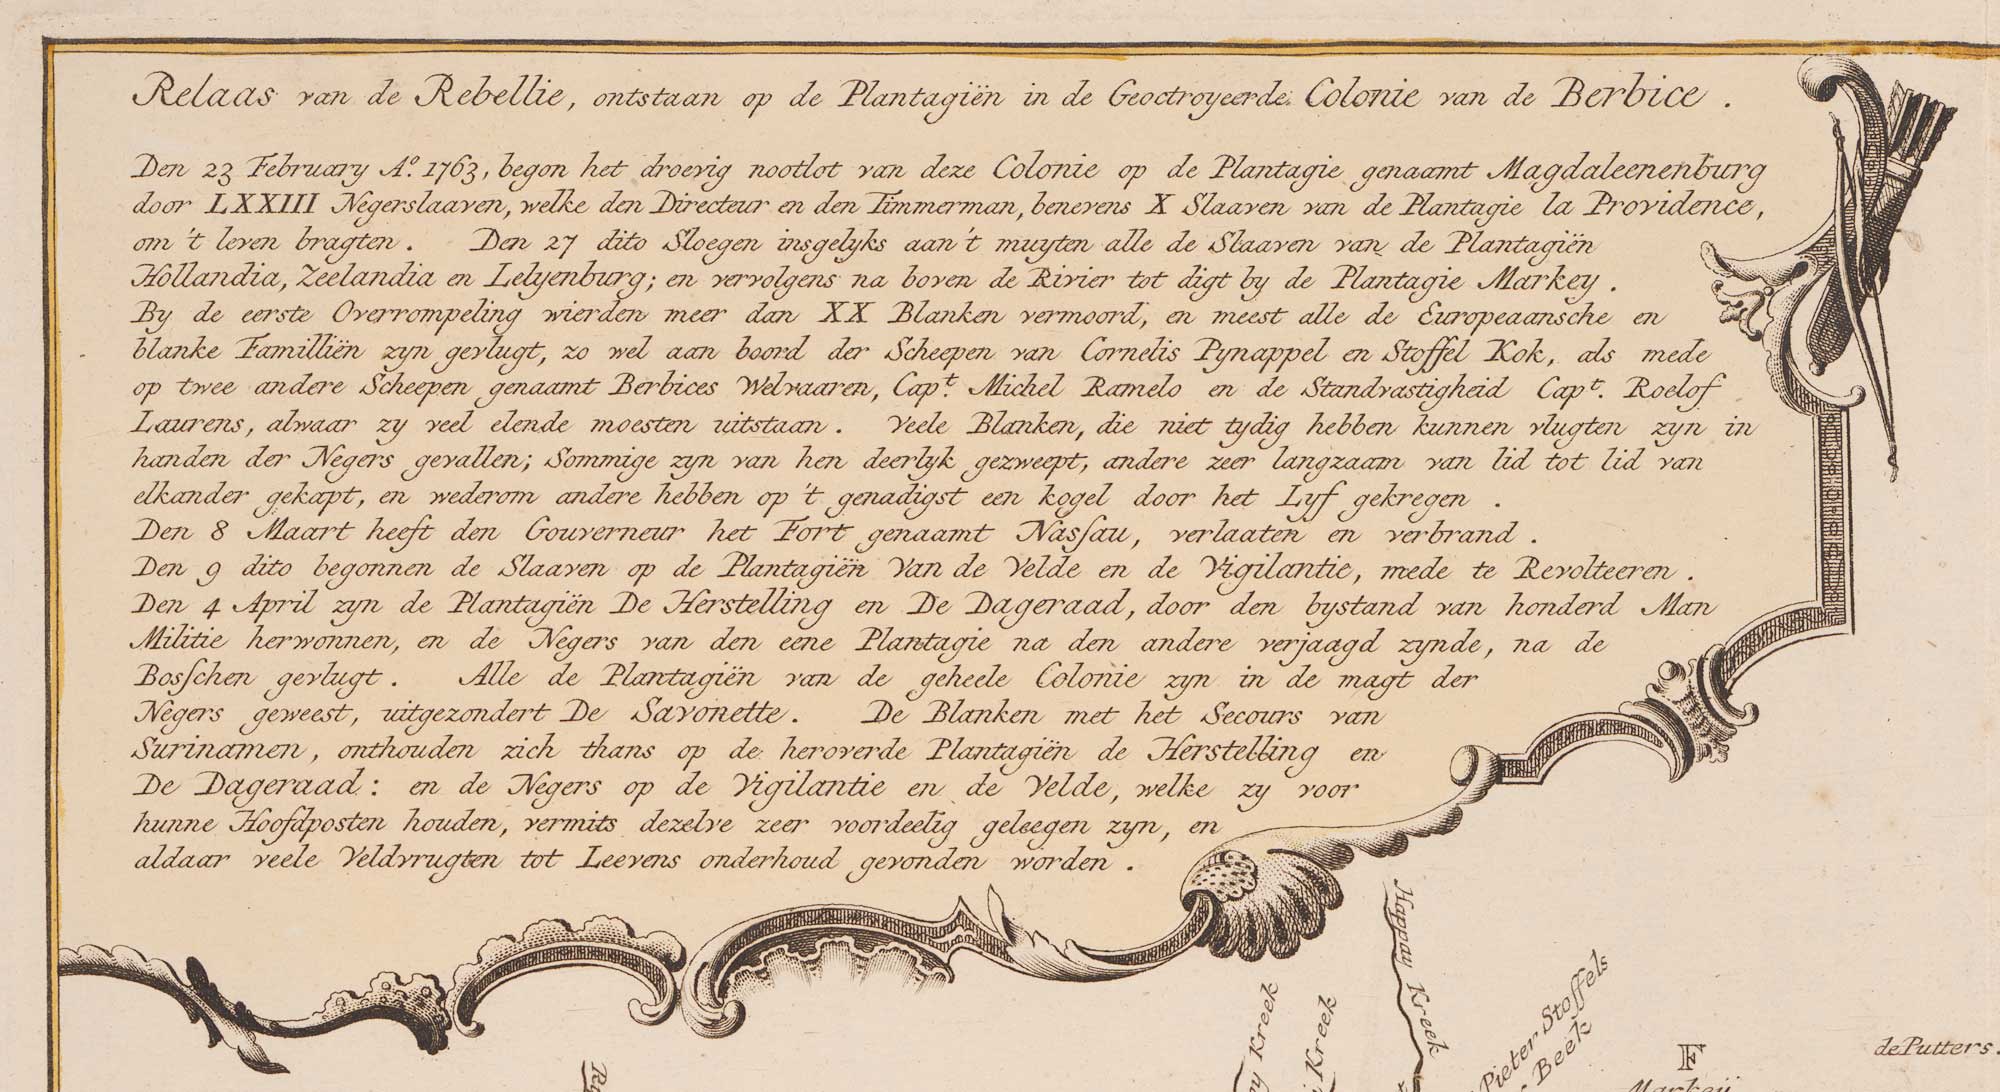 Relaas van de Rebellie, ontstaan op de Plantagiën in de Geoctroyeerde Colonie van de Berbice.
Den 23 February Aº. 1763, begon het droevig nootlot van deze Colonie op de Plantagie genaamt Magdaleenenburg
door LXXIII Negerslaaven, welke den Directeur en den Timmerman, benevens X Slaaven van de Plantagie la Providence,
om 't leven bragten. Den 27 dito Sloegen insgelyks aan't muyten alle de Slaaven van de Plantagiën
Hollandia, Zeelandia en Lelyenburg; en vervolgens na boven de Rivier tot digt by de Plantagie Markey.
By de eerste Overrompeling wierden meer dan XX Blanken vermoord, en meest alle de Europeaansche en
blanke Familliën zyn gevlugt, zo wel aan boord der Scheepen van Cornelis Pynappel en Stoffel Kok, als mede
op twee andere Scheepen genaamt Berbices Welvaaren, Capt. Michel Ramelo en de Standvastigheid Capt. Roelof
Laurens, alwaar zy veel elende moesten uitstaan. Veele Blanken, die niet tydig hebben kunnen vlugten zyn in
handen der Negers gevallen; Sommige zyn van hen deerlyk gezweept, andere zeer langzaam van lid tot lid van
elkander gekapt, en wederom andere hebben op 't genadigst een kogel door het Lyf gekregen.
Den 8 Maart heeft den Gouverneur het Fort genaamt Nasſau, verlaaten en verbrand.
Den 9 dito begonnen de Slaaven op de Plantagiën Van de Velde en de Vigilantie, mede te Revolteeren.
Den 4 April zyn de Plantagiën De Herstelling en De Dageraad, door den bystand van honderd Man
Militie herwonnen, en de Negers van den eene Plantagie na den andere verjaagd zynde, na de
Bosſchen gevlugt. Alle de Plantagiën van de geheele Colonie zyn in de magt der
Negers geweest, uitgezondert De Savonette. De Blanken met het Secours van
Surinamen, onthouden zich thans op de heroverde Plantagiën de Herstelling en
De Dageraad: en de Negers op de Vigilantie en de Velde, welke zy voor
hunne Hoofdposten houden, vermits dezelve zeer voordeelig geleegen zyn, en
aldaar veele Veldvrugten tot Leevens onderhoud gevonden worden.
Happay Kreek
Kreek
Kreek
Pieter Stoffels
Beek
F
Markeÿ
de Putters.